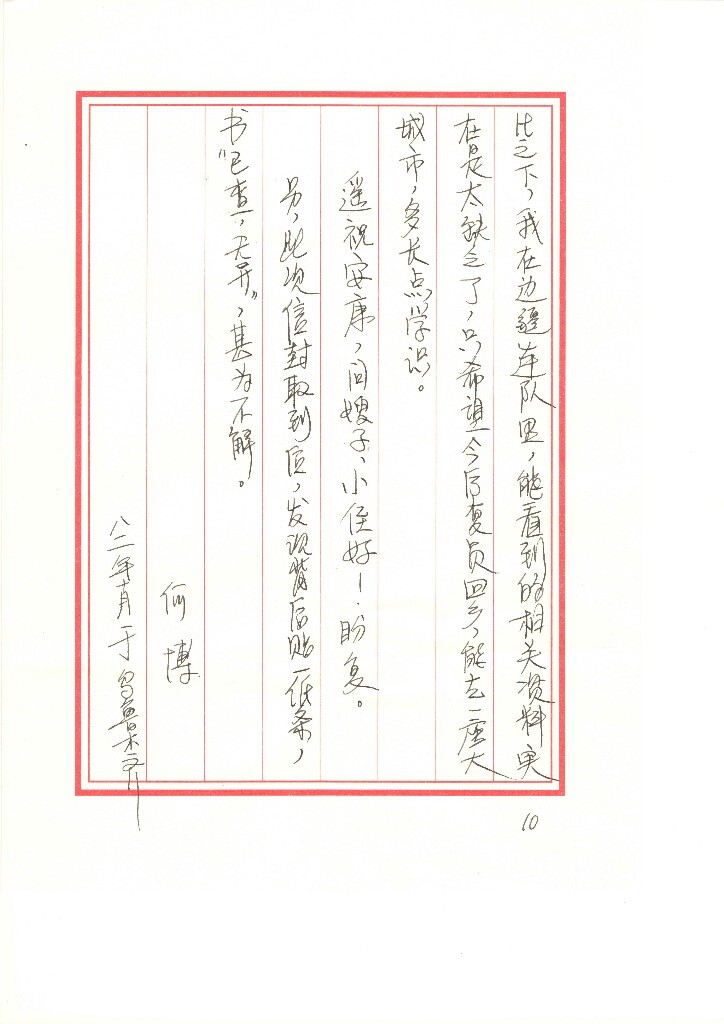 比之下，我在边疆连队里，能看到的相关资料实
在是太缺乏了，只希望今后复员回乡，能去一座大
城市，多长点学识。
遥祝安康，问嫂子、小侯好！盼复。
另，此次信封取到后，发现背后贴一纸条，
书“已查，无异”，甚为不解。
何博
八二年十月于乌鲁木齐
10